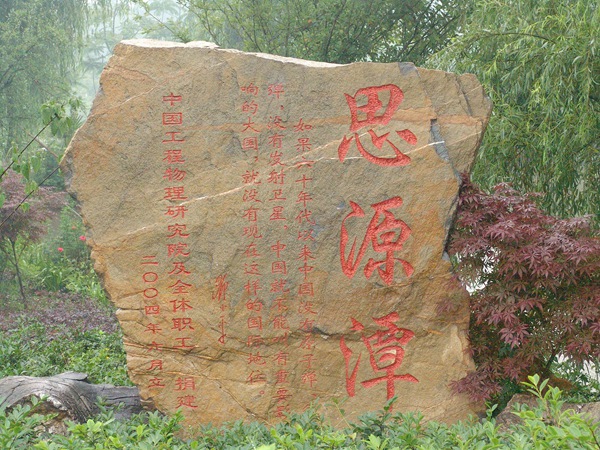 思源潭
如果六十年代以来中国没有原子弹、氢
弹,没有发射卫星,中国就不能叫有重要影
响的大国,就没有现在这样的国际地位
中国工程物理研究院及全体职工 捐建
二00四年六月立